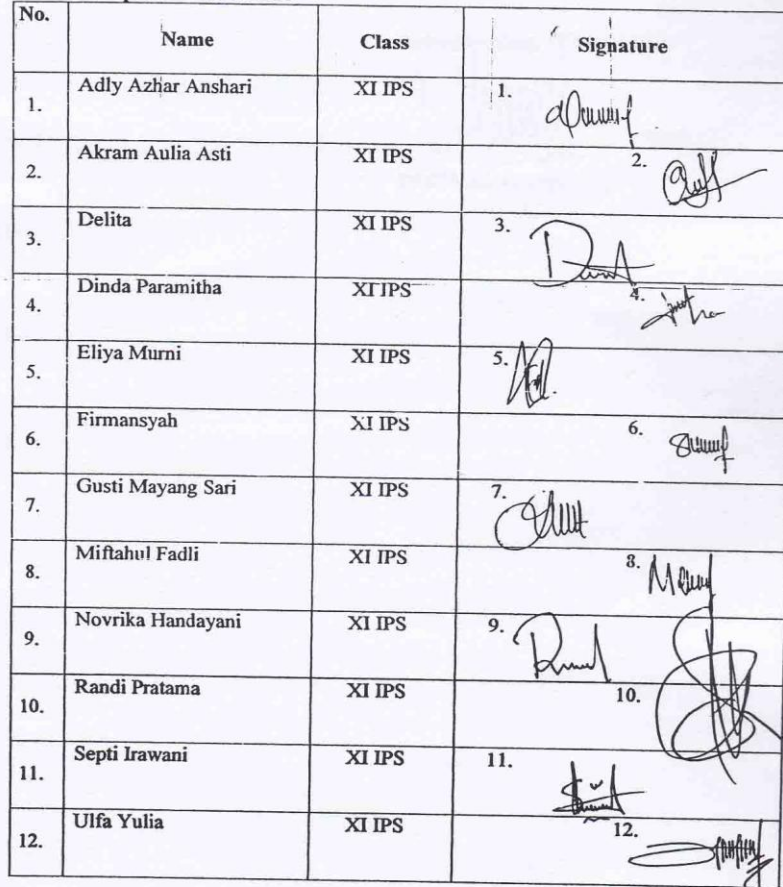 No. Name Class Signature
1. Adly Azhar Anshari XI IPS 1.
2. Akram Aulia Asti XI IPS 2.
3. Delita XI IPS 3.
4. Dinda Paramitha XI IPS 4.
5. Eliya Murni XI IPS 5.
6. Firmansyah XI IPS 6.
7. Gusti Mayang Sari XI IPS 7.
8. Miftahul Fadli XI IPS 8.
9. Novrika Handayani XI IPS 9.
10. Randi Pratama XI IPS 10.
11. Septi Irawani XI IPS 11.
12. Ulfa Yulia XI IPS 12.